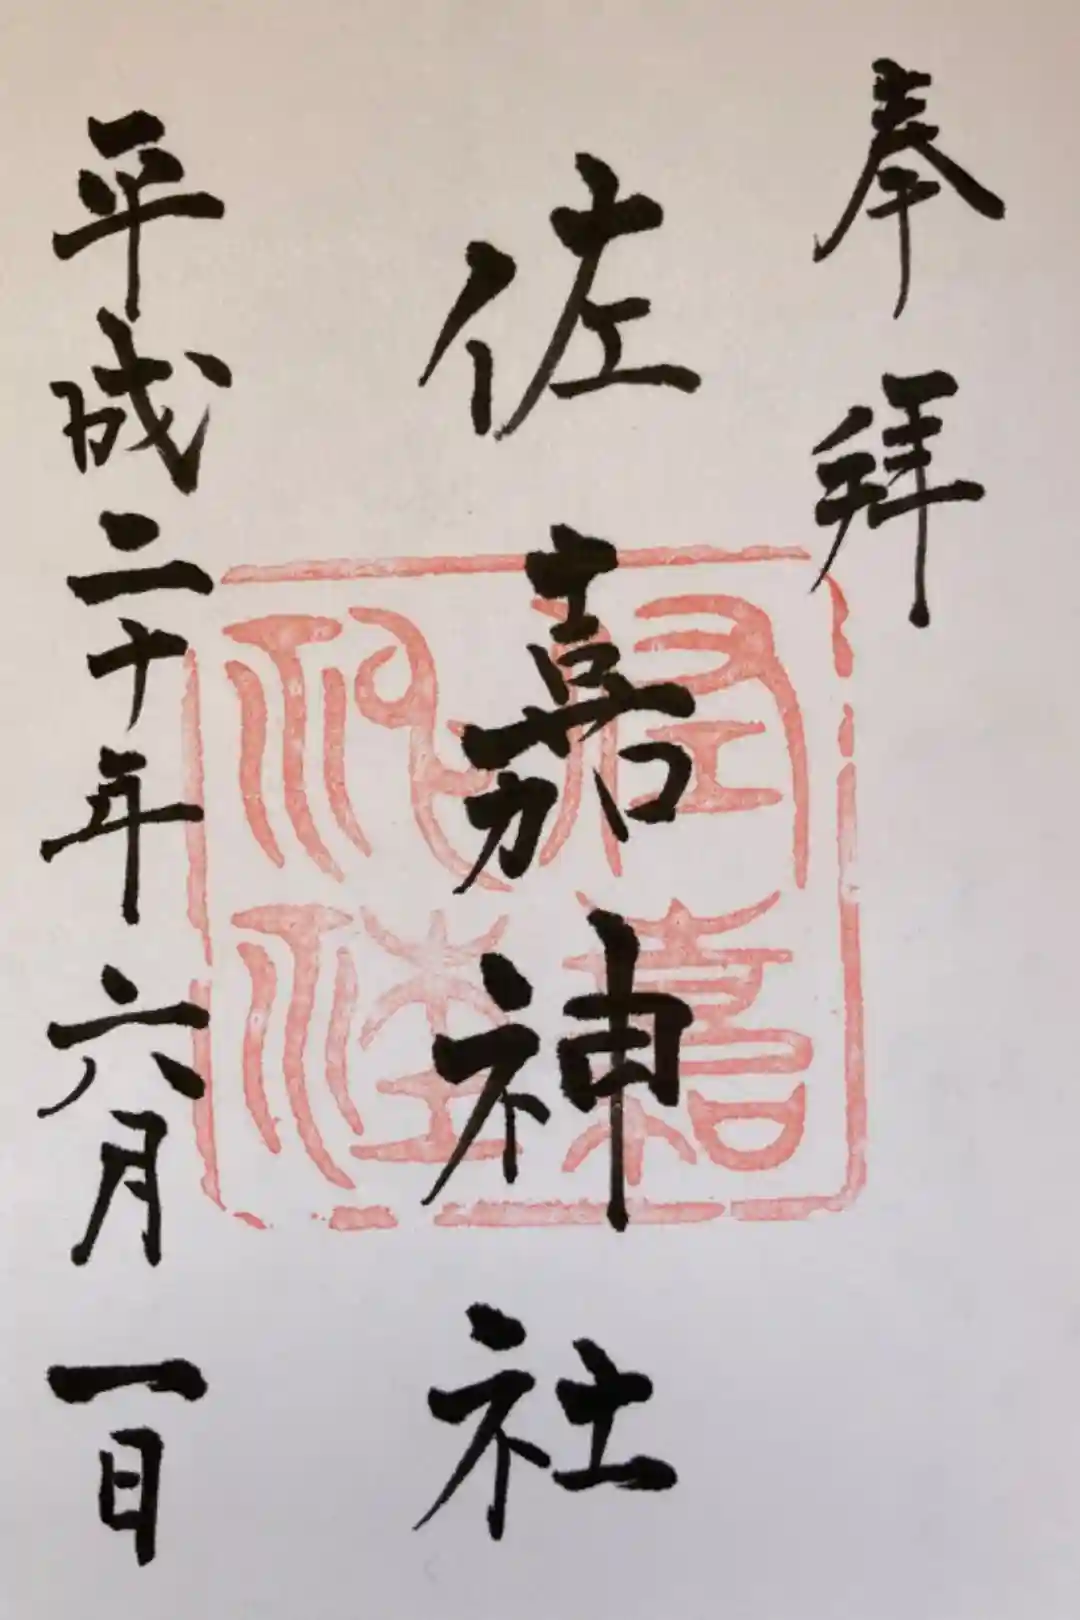 奉拜
佐嘉神社
平成二十年六月一日
佐嘉神社